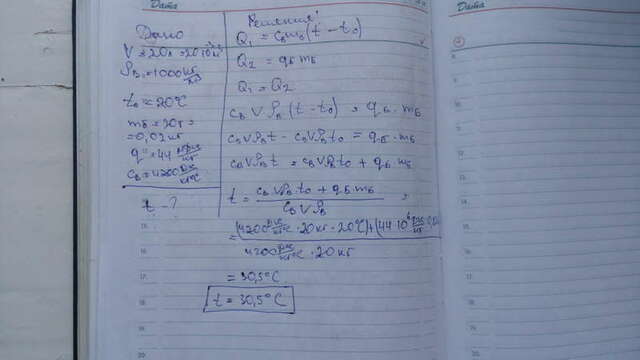 Дата
Дата
Дано
V = 20л = 20·10⁻³м³
ρв = 1000 кг/м³
t₀ = 20°C
mб = 20г =
= 0,02 кг
q = 44 МДж/кг
cв = 4200 Дж/кг°C
t - ?
Решение:
Q₁ = cвmв(t - t₀)
Q₂ = qб mб
Q₁ = Q₂
cв V ρв (t - t₀) = qб · mб
cв V ρв t - cв V ρв t₀ = qб · mб
cв V ρв t = cв V ρв t₀ + qб · mб
t = (cв V ρв · t₀ + qб · mб) / (cв V ρв) =
= (4200 Дж/кг°C · 20кг · 20°C) + (44·10⁶ Дж/кг
4200 Дж/кг°C · 20кг
= 30,5°C
t = 30,5°C
15.
17.
18.
19.
20.